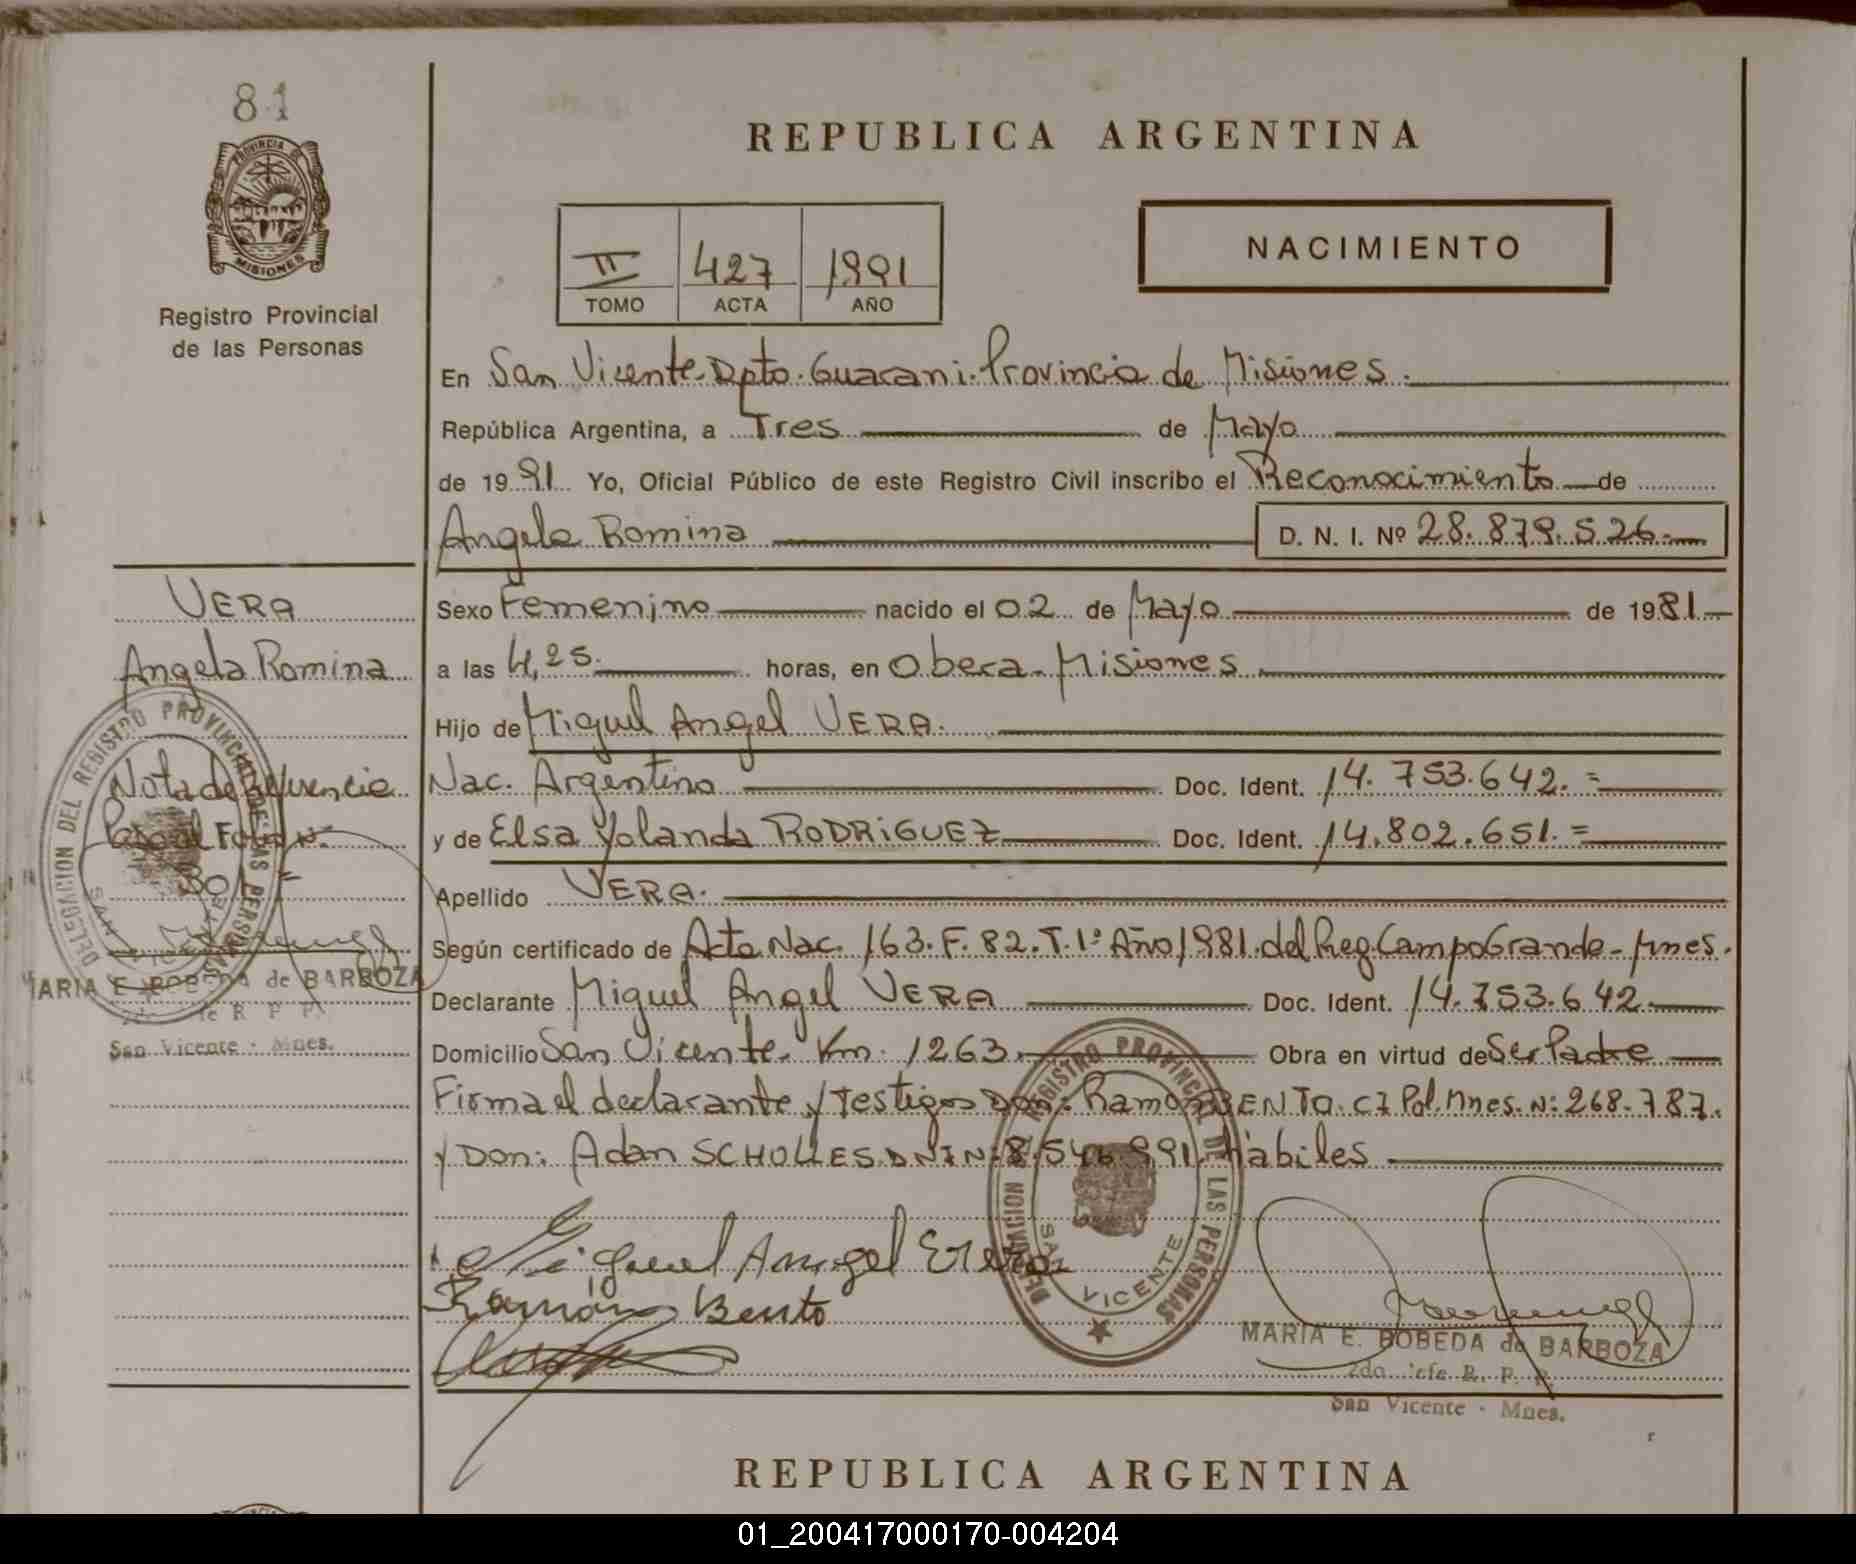 81
PROVINCIA DE
MISIONES
Registro Provincial
de las Personas
REPUBLICA ARGENTINA
II 427 1991
TOMO ACTA AÑO
NACIMIENTO
En San Vicente-Dpto. Guarani. Provincia de Misiones.
República Argentina, a Tres de Mayo
de 1991 Yo, Oficial Público de este Registro Civil inscribo el Reconocimiento de
Angela Romina D. N. I. Nº 28.879.526.
Sexo Femenino nacido el 02 de Mayo de 1981
a las 4,25. horas, en Obera-Misiones
Hijo de Miguel Angel VERA.
Nac. Argentina Doc. Ident. 14.753.642.=
y de Elsa Yolanda RODRIGUEZ Doc. Ident. 14.802.651.=
Apellido VERA.
Según certificado de Acta Nac. 163. F. 82. T. 1º Año 1981. del Reg. Campo Grande-Mnes.
Declarante Miguel Angel VERA Doc. Ident. 14.753.642.
Domicilio San Vicente. Km. 1263. Obra en virtud de Ser Padre
Firma el declarante y Testigos Don: Ramon BENTO. CI Pol. Mnes. Nº: 268.787.
y Don: Adan SCHOLLES DNI Nº 8.546.991. Hábiles
Miguel Angel Vera
Ramón Bento
DELEGACION DEL REGISTRO PROVINCIAL DE LAS PERSONAS
SAN VICENTE
MARIA E. BOBEDA de BARBOZA
2do. Jefe R. P. P.
San Vicente - Mnes.
VERA
Angela Romina
Nota de referencia
Folio Nº
30 =
DELEGACION DEL REGISTRO PROVINCIAL DE LAS PERSONAS
SAN VICENTE
MARIA E. BOBEDA de BARBOZA
2do. Jefe R. P. P.
San Vicente - Mnes.
REPUBLICA ARGENTINA
01_200417000170-004204